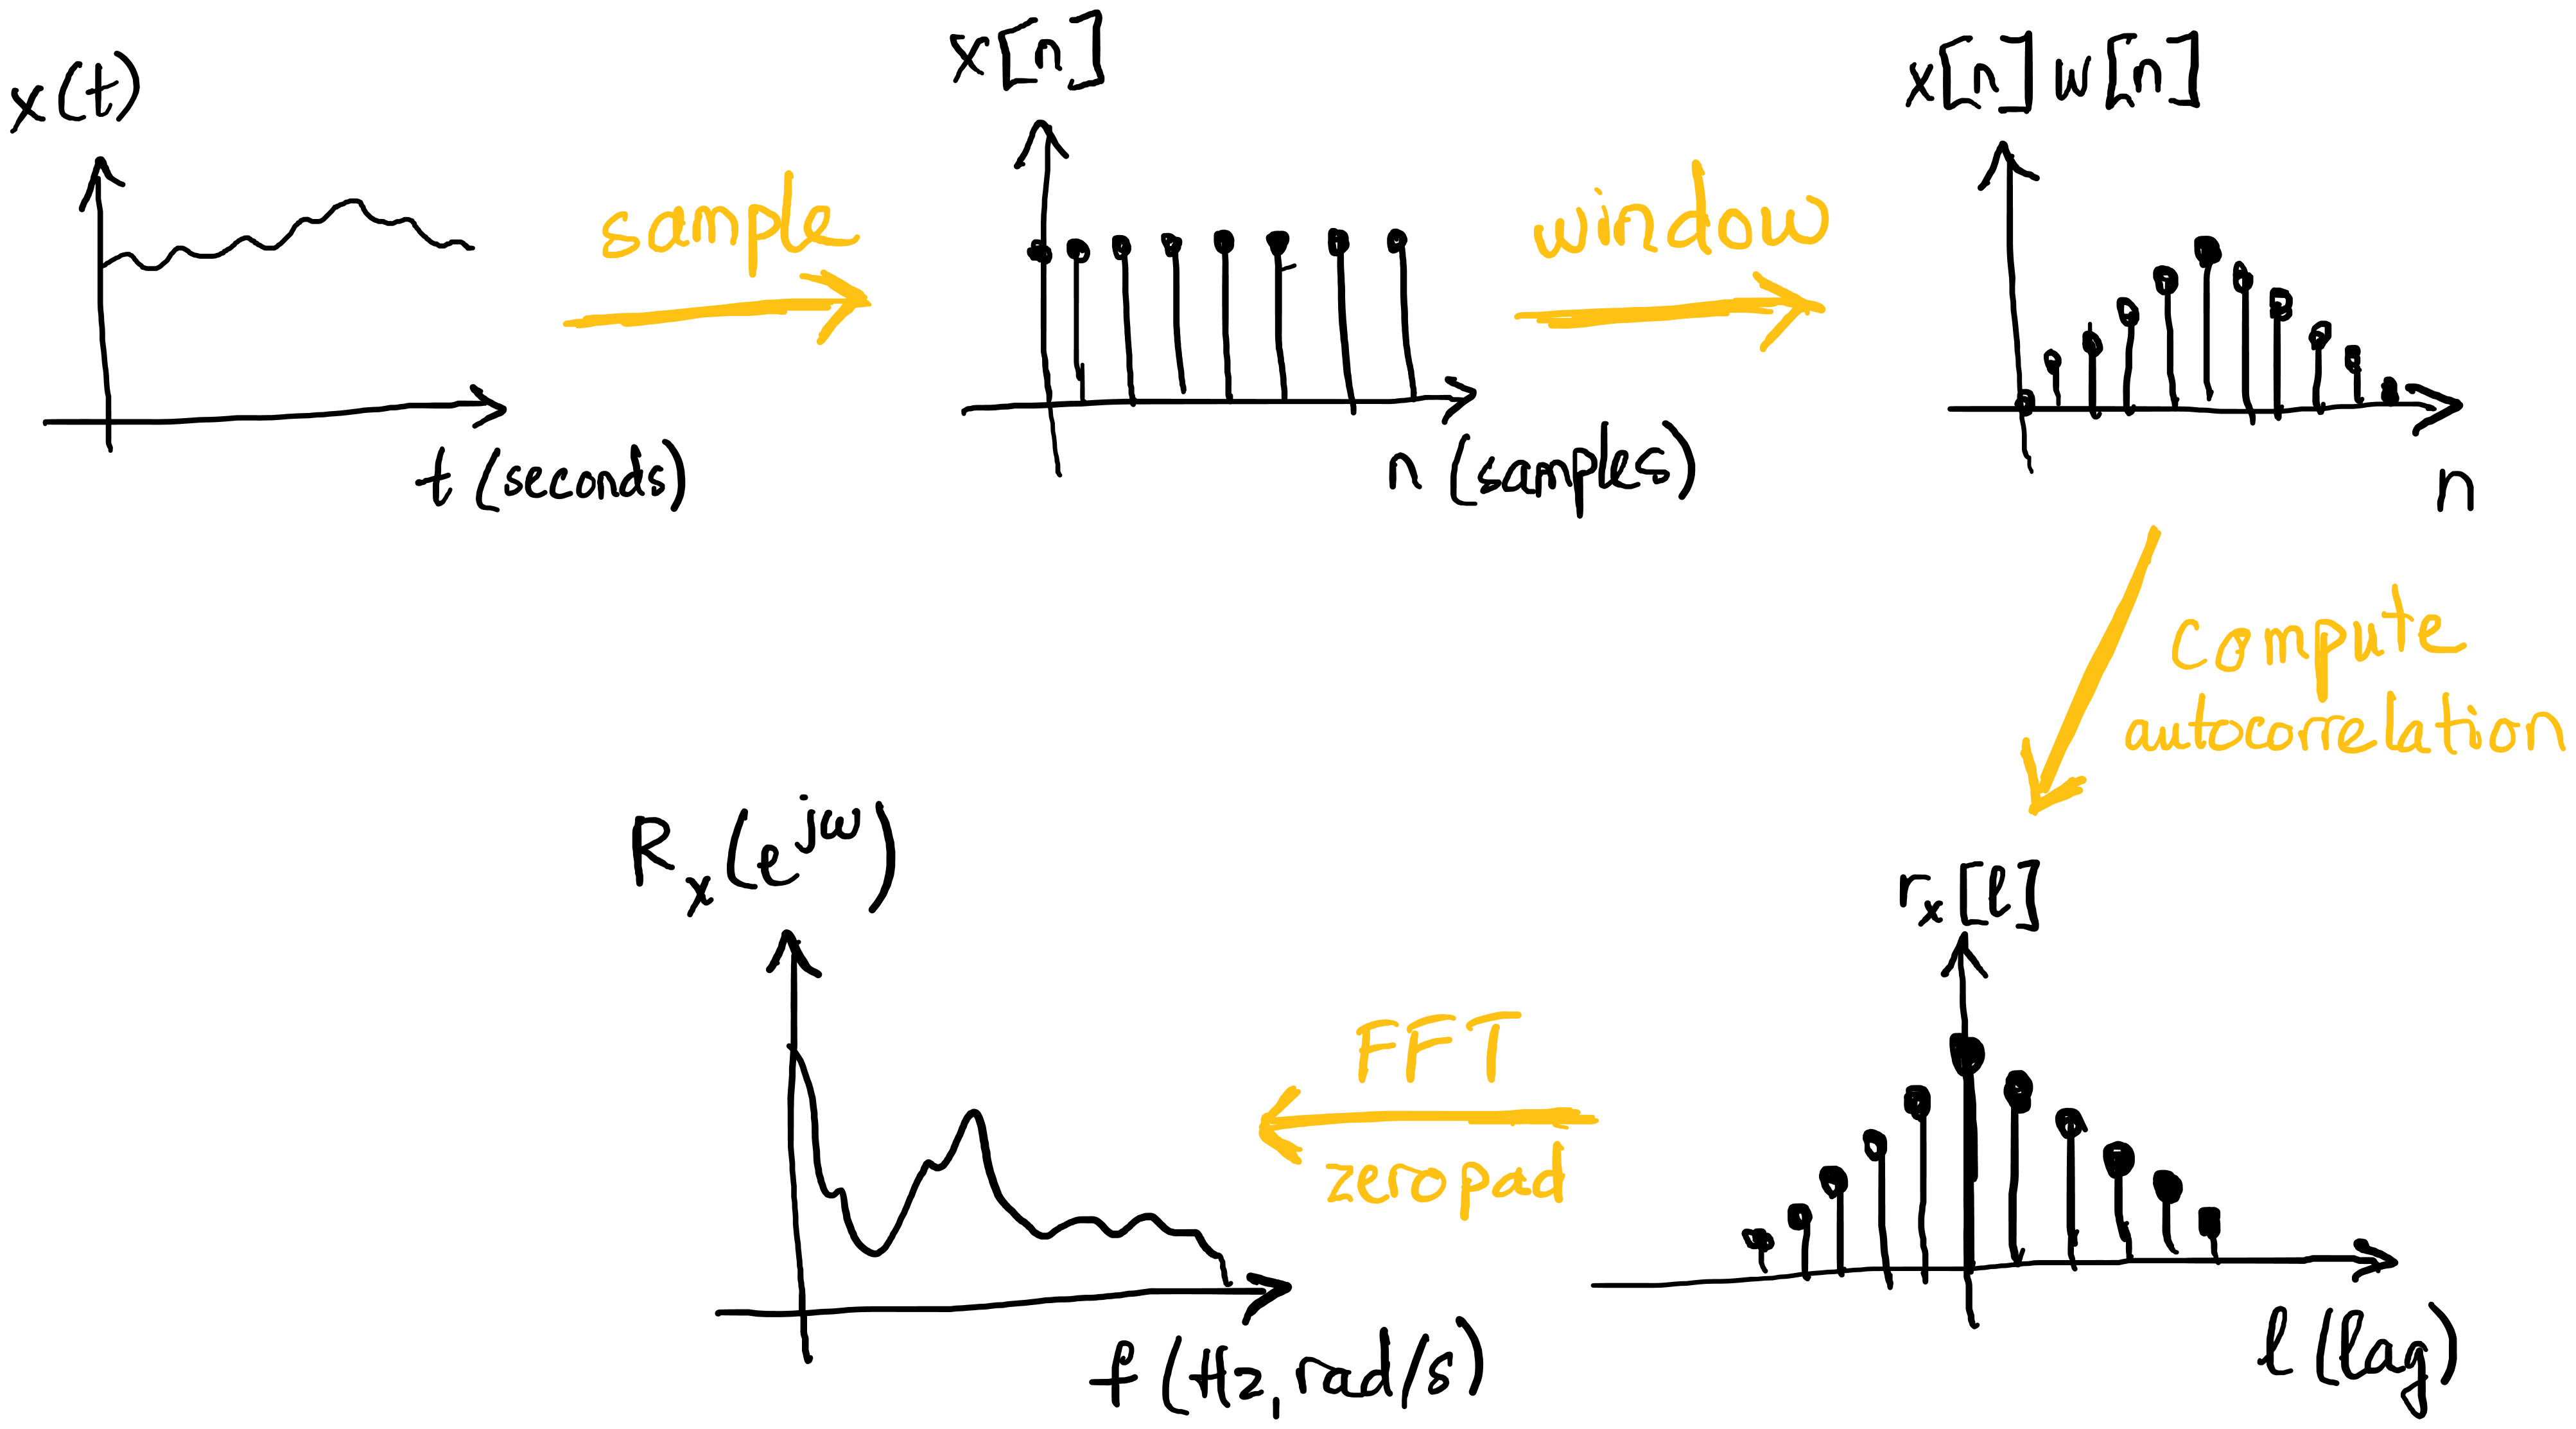 x(t)
t (seconds)
sample
x[n]
n (samples)
window
x[n] w[n]
n
compute
autocorrelation
rₓ[ℓ]
ℓ (lag)
FFT
zero pad
Rₓ(e^{jω})
f (Hz, rad/s)